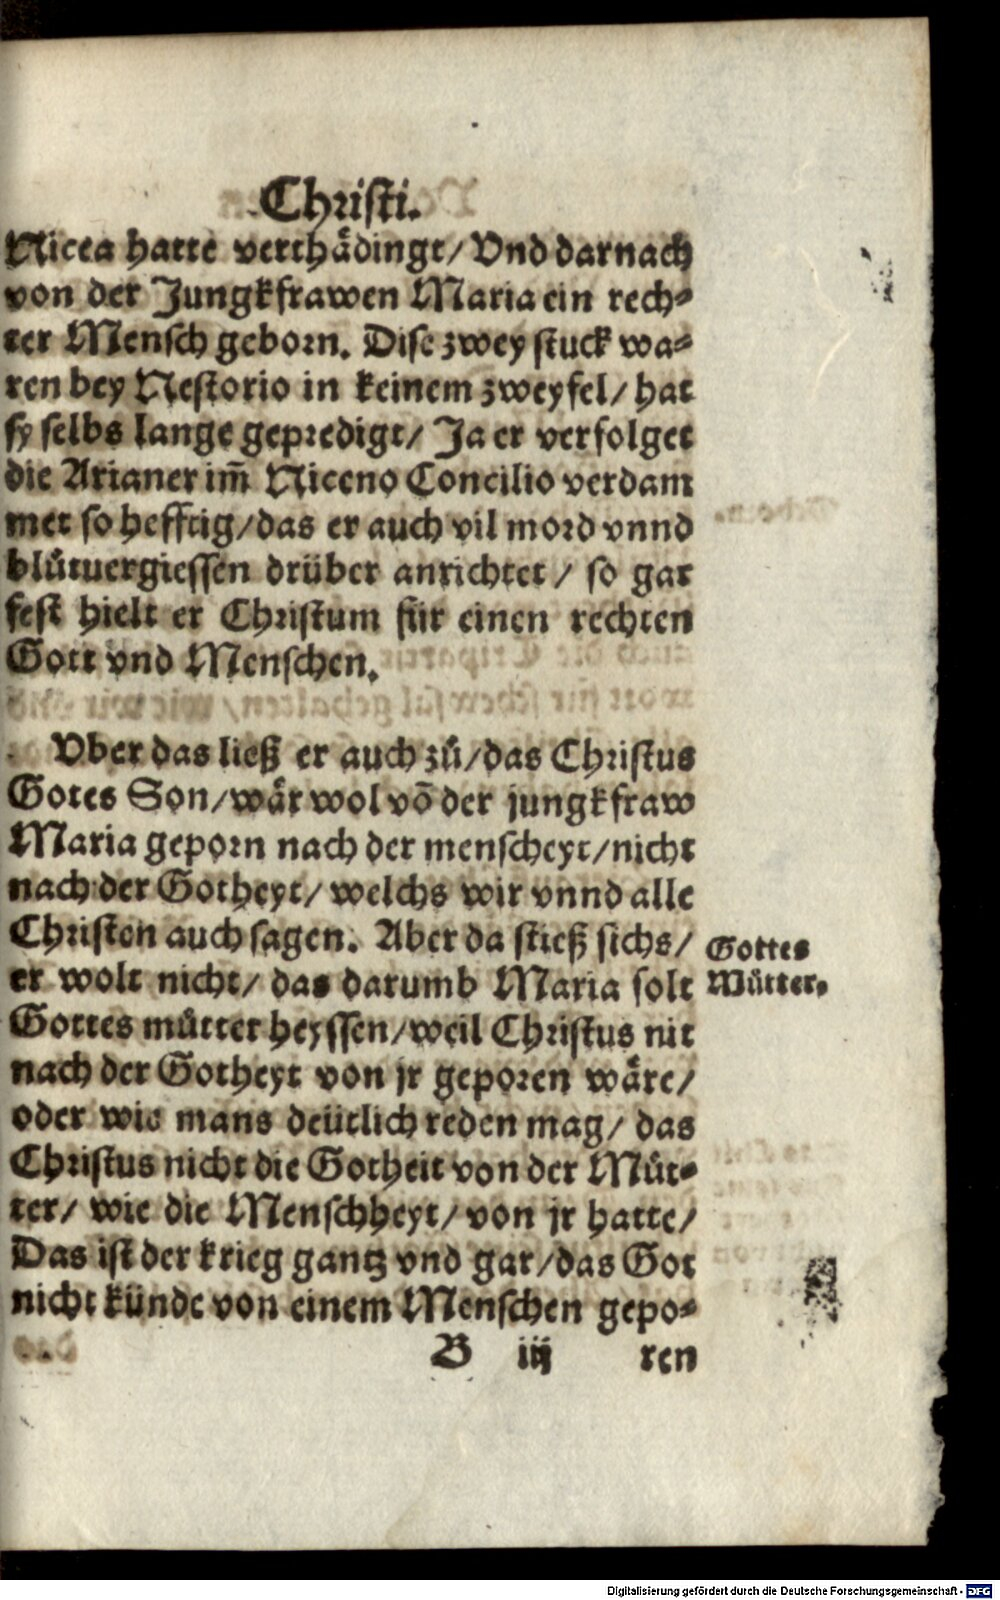 Christi.
Nicea hatte verthädingt/ Vnd darnach
von der Jungkfrawen Maria ein rech⸗
ter Mensch geborn. Dise zwey stuck wa⸗
ren bey Nestorio in keinem zweyfel/ hat
sy selbs lange gepredigt/ Ja er verfolget
die Arianer im̃ Niceno Concilio verdam
met so hefftig/ das er auch vil mord vnnd
blůtuergiessen drüber anrichtet/ so gar
fest hielt er Christum für einen rechten
Gott vnd Menschen.
Vber das ließ er auch zů/ das Christus
Gotes Son/ wär wol võ der jungkfraw
Maria geporn nach der menscheyt/ nicht
nach der Gotheyt/ welchs wir vnnd alle
Christen auch sagen. Aber da stieß sichs/
er wolt nicht/ das darumb Maria solt
Gottes můtter heyssen/ weil Christus nit
nach der Gotheyt von jr geporen wäre/
oder wie mans deütlich reden mag/ das
Christus nicht die Gotheit von der Můt⸗
ter/ wie die Menschheyt/ von jr hatte/
Das ist der krieg gantz vnd gar/ das Got
nicht künde von einem Menschen gepo⸗
Gottes
Můtter.
B iij ren
Digitalisierung gefördert durch die Deutsche Forschungsgemeinschaft - DFG